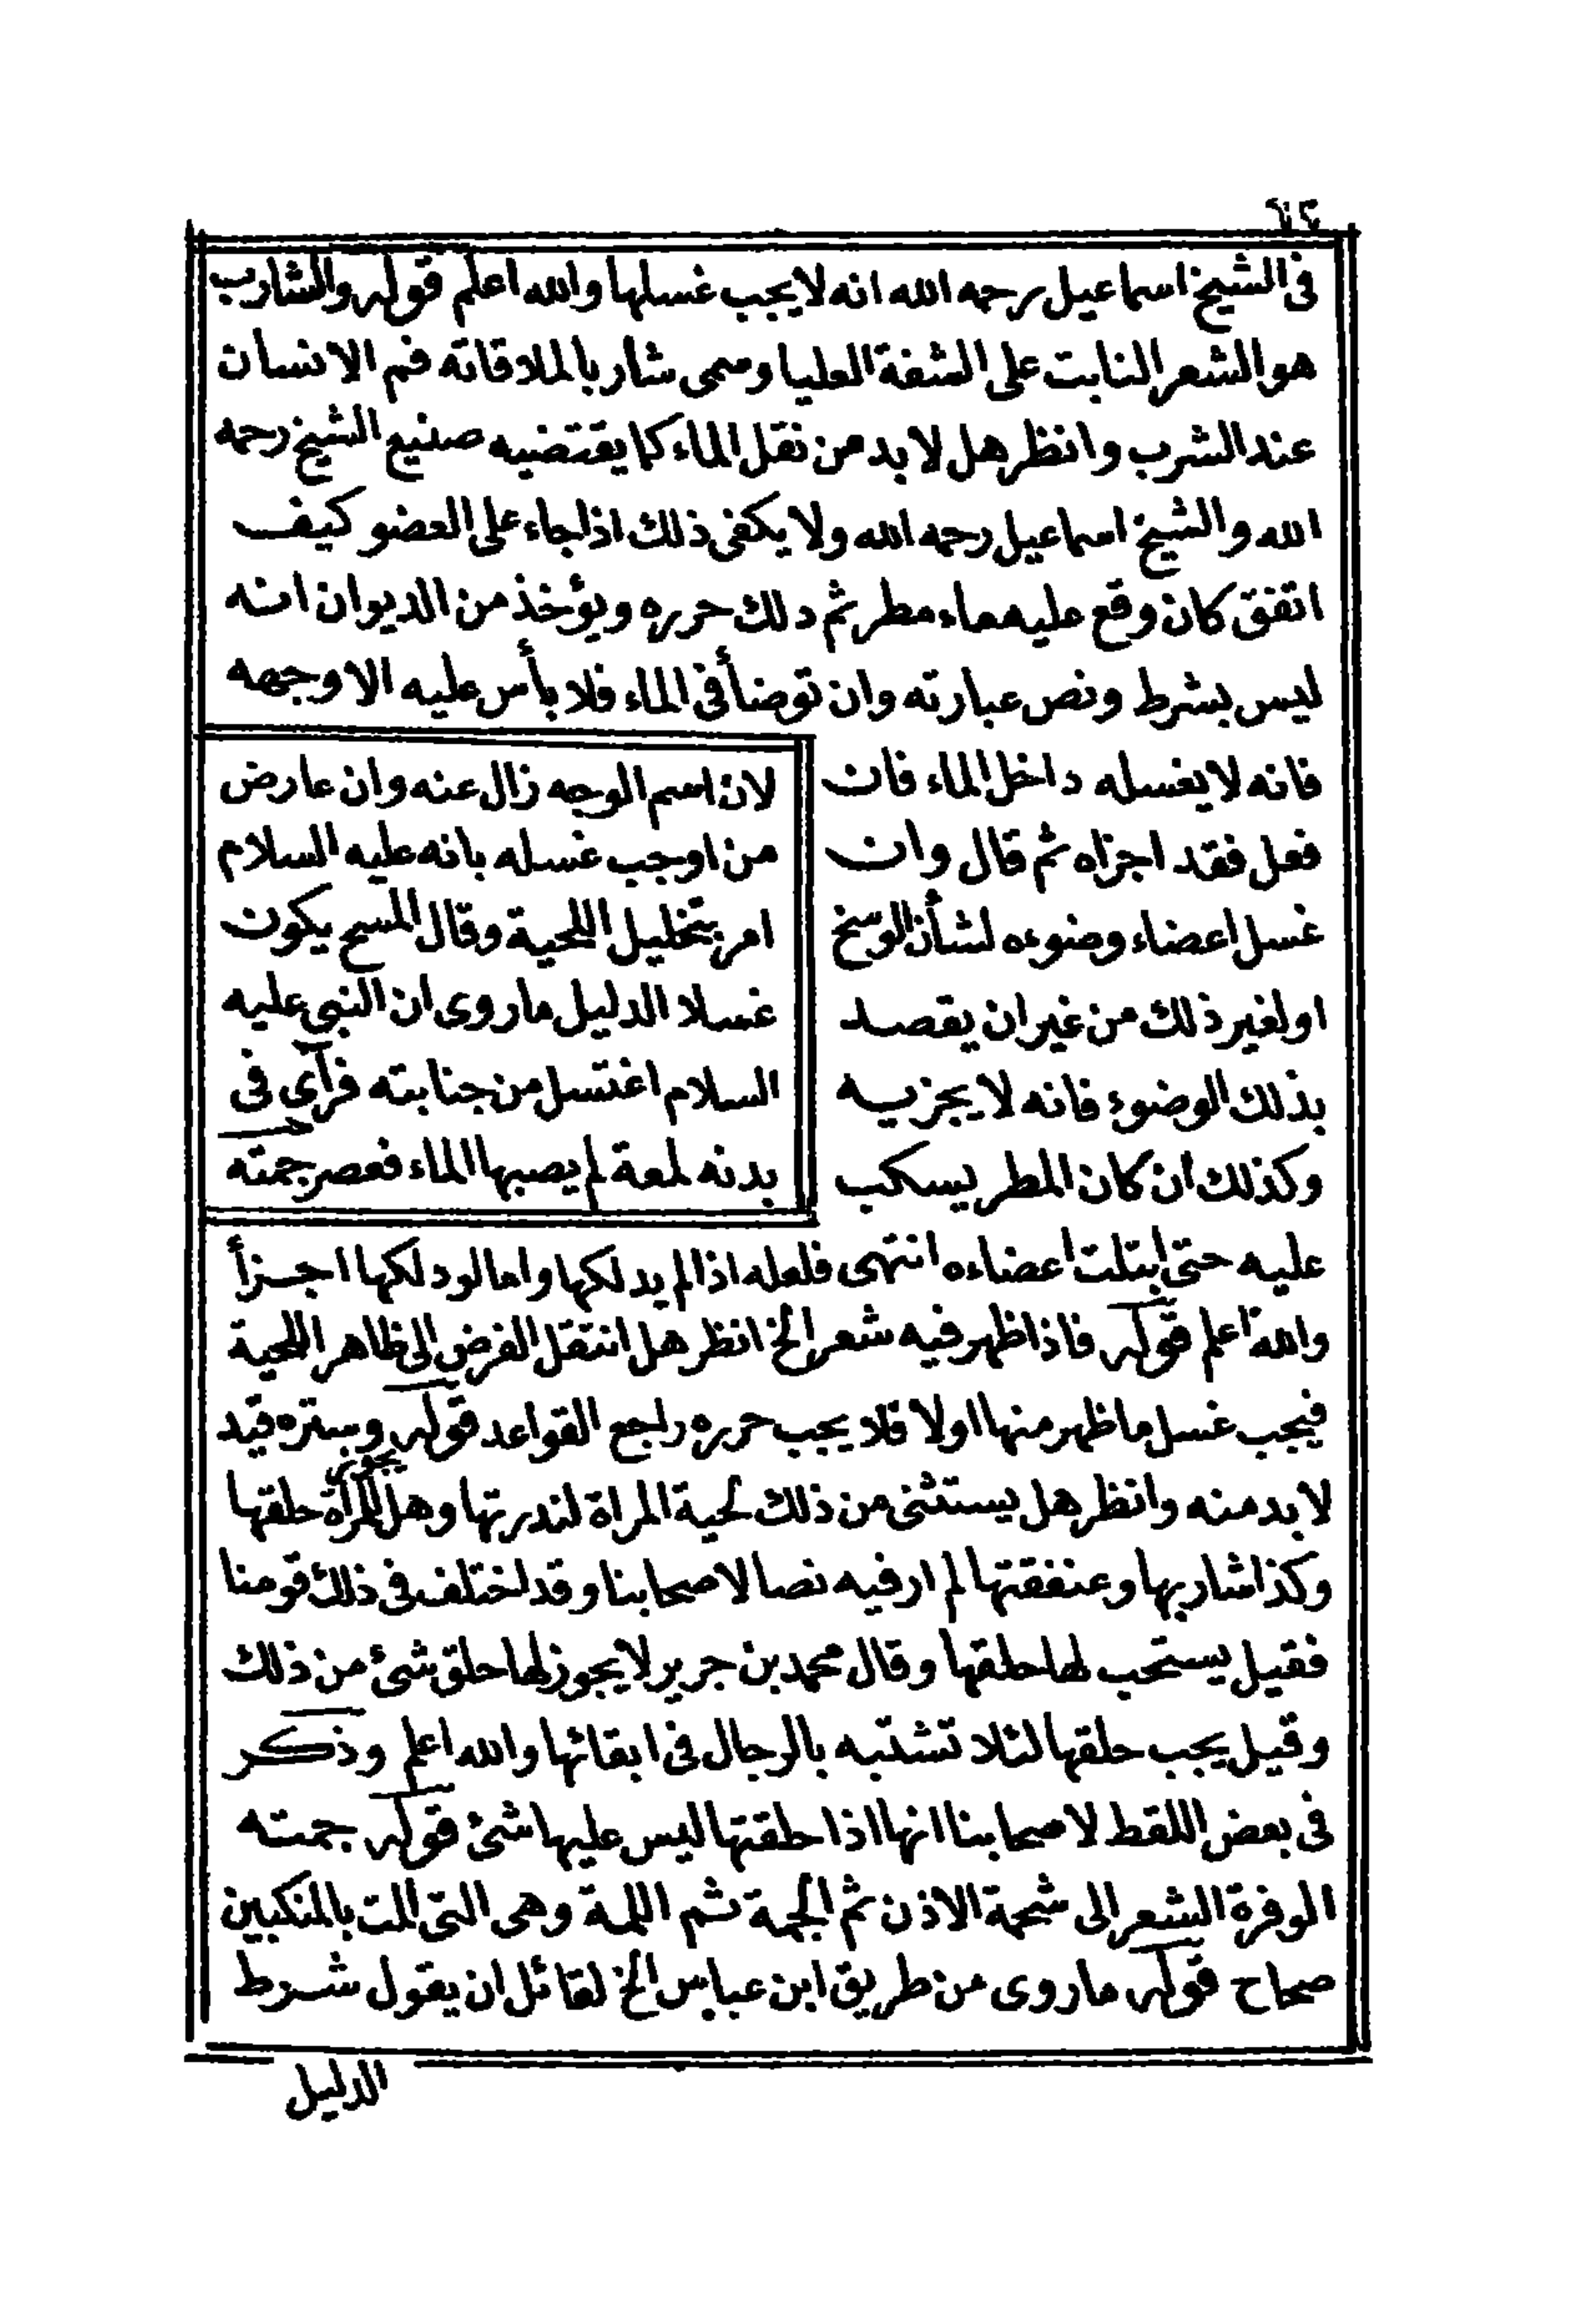 فى الشيخ اسماعيل رحمه الله انه لا يجب غسلها والله اعلم قوله والشارب
هو الشعر النابت على الشفة العليا وسمى شاربا لملاقاته فم الانسان
عند الشرب وانظر هل لا بد من نقل الماء كما يقتضيه صنيع الشيخ رحمه
الله والشيخ اسماعيل رحمه الله ولا يكفى ذلك اذا جاء على العضو كيف
اتفق كان وقع عليه ماء مطر ثم دلك حرره ويؤخذ من الديوان انه
ليس بشرط ونص عبارته وان توضأ فى الماء فلا بأس عليه الا وجهه
فانه لا يغسله داخل الماء فان
فعل فقد اجزاه ثم قال وان
غسل اعضاء وضوءه لشأن الوسخ
او لغير ذلك من غير ان يقصد
بذلك الوضوء فانه لا يجزيه
وكذلك ان كان المطر يسكب
عليه حتى ابتلت اعضاءه انتهى فلعله اذا لم يدلكها واما لو دلكها اجزأ
والله اعلم قوله فاذا ظهر فيه شعر الخ انظر هل انتقل الفرض الى ظاهر اللحية
فيجب غسل ما ظهر منها او لا فلا يجب حرره راجع القواعد قوله وستره قيد
لا بد منه وانظر هل يستثنى من ذلك لحية المراة لندرتها وهل يجوز للمرأة حلقها
وكذا شاربها وعنفقتها لم ار فيه نصا لاصحابنا وقد اختلف فى ذلك قومنا
فقيل يستحب لها حلقها وقال محمد بن جرير لا يجوز لها حلق شئ من ذلك
وقيل يجب حلقها لئلا تشتبه بالرجال فى ابقائها والله اعلم وذكر
فى بعض اللقط لاصحابنا انها اذا حلقتها ليس عليها شئ قوله جمته
الوفرة الشعر الى شحمة الاذن ثم الجمة ثم اللمة وهى التى المت بالمنكبين
صحاح قوله ما روى من طريق ابن عباس الخ لقائل ان يقول شرط
لان اسم الوجه زال عنه وان عارض
من اوجب غسله بانه عليه السلام
امر بتخليل اللحية وقال المسح يكون
غسلا الدليل ما روى ان النبى عليه
السلام اغتسل من جنابته فرآى فى
بدنه لمعة لم يصبها الماء فعصر جمته
الدليل